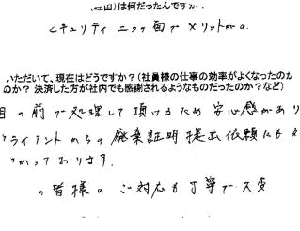 は何だったんですか
セキュリティ ニック面でメリットが
いただいて、現在はどうですか？（社員様の仕事の効率がよくなったのか
のか？ 決済した方が社内でも感謝されるようなものだったのか？など）
目の前で処理して頂けるため安心感があり
クライアントからの廃棄証明提出依頼にも
かっております。
皆様のご対応も丁寧で大変